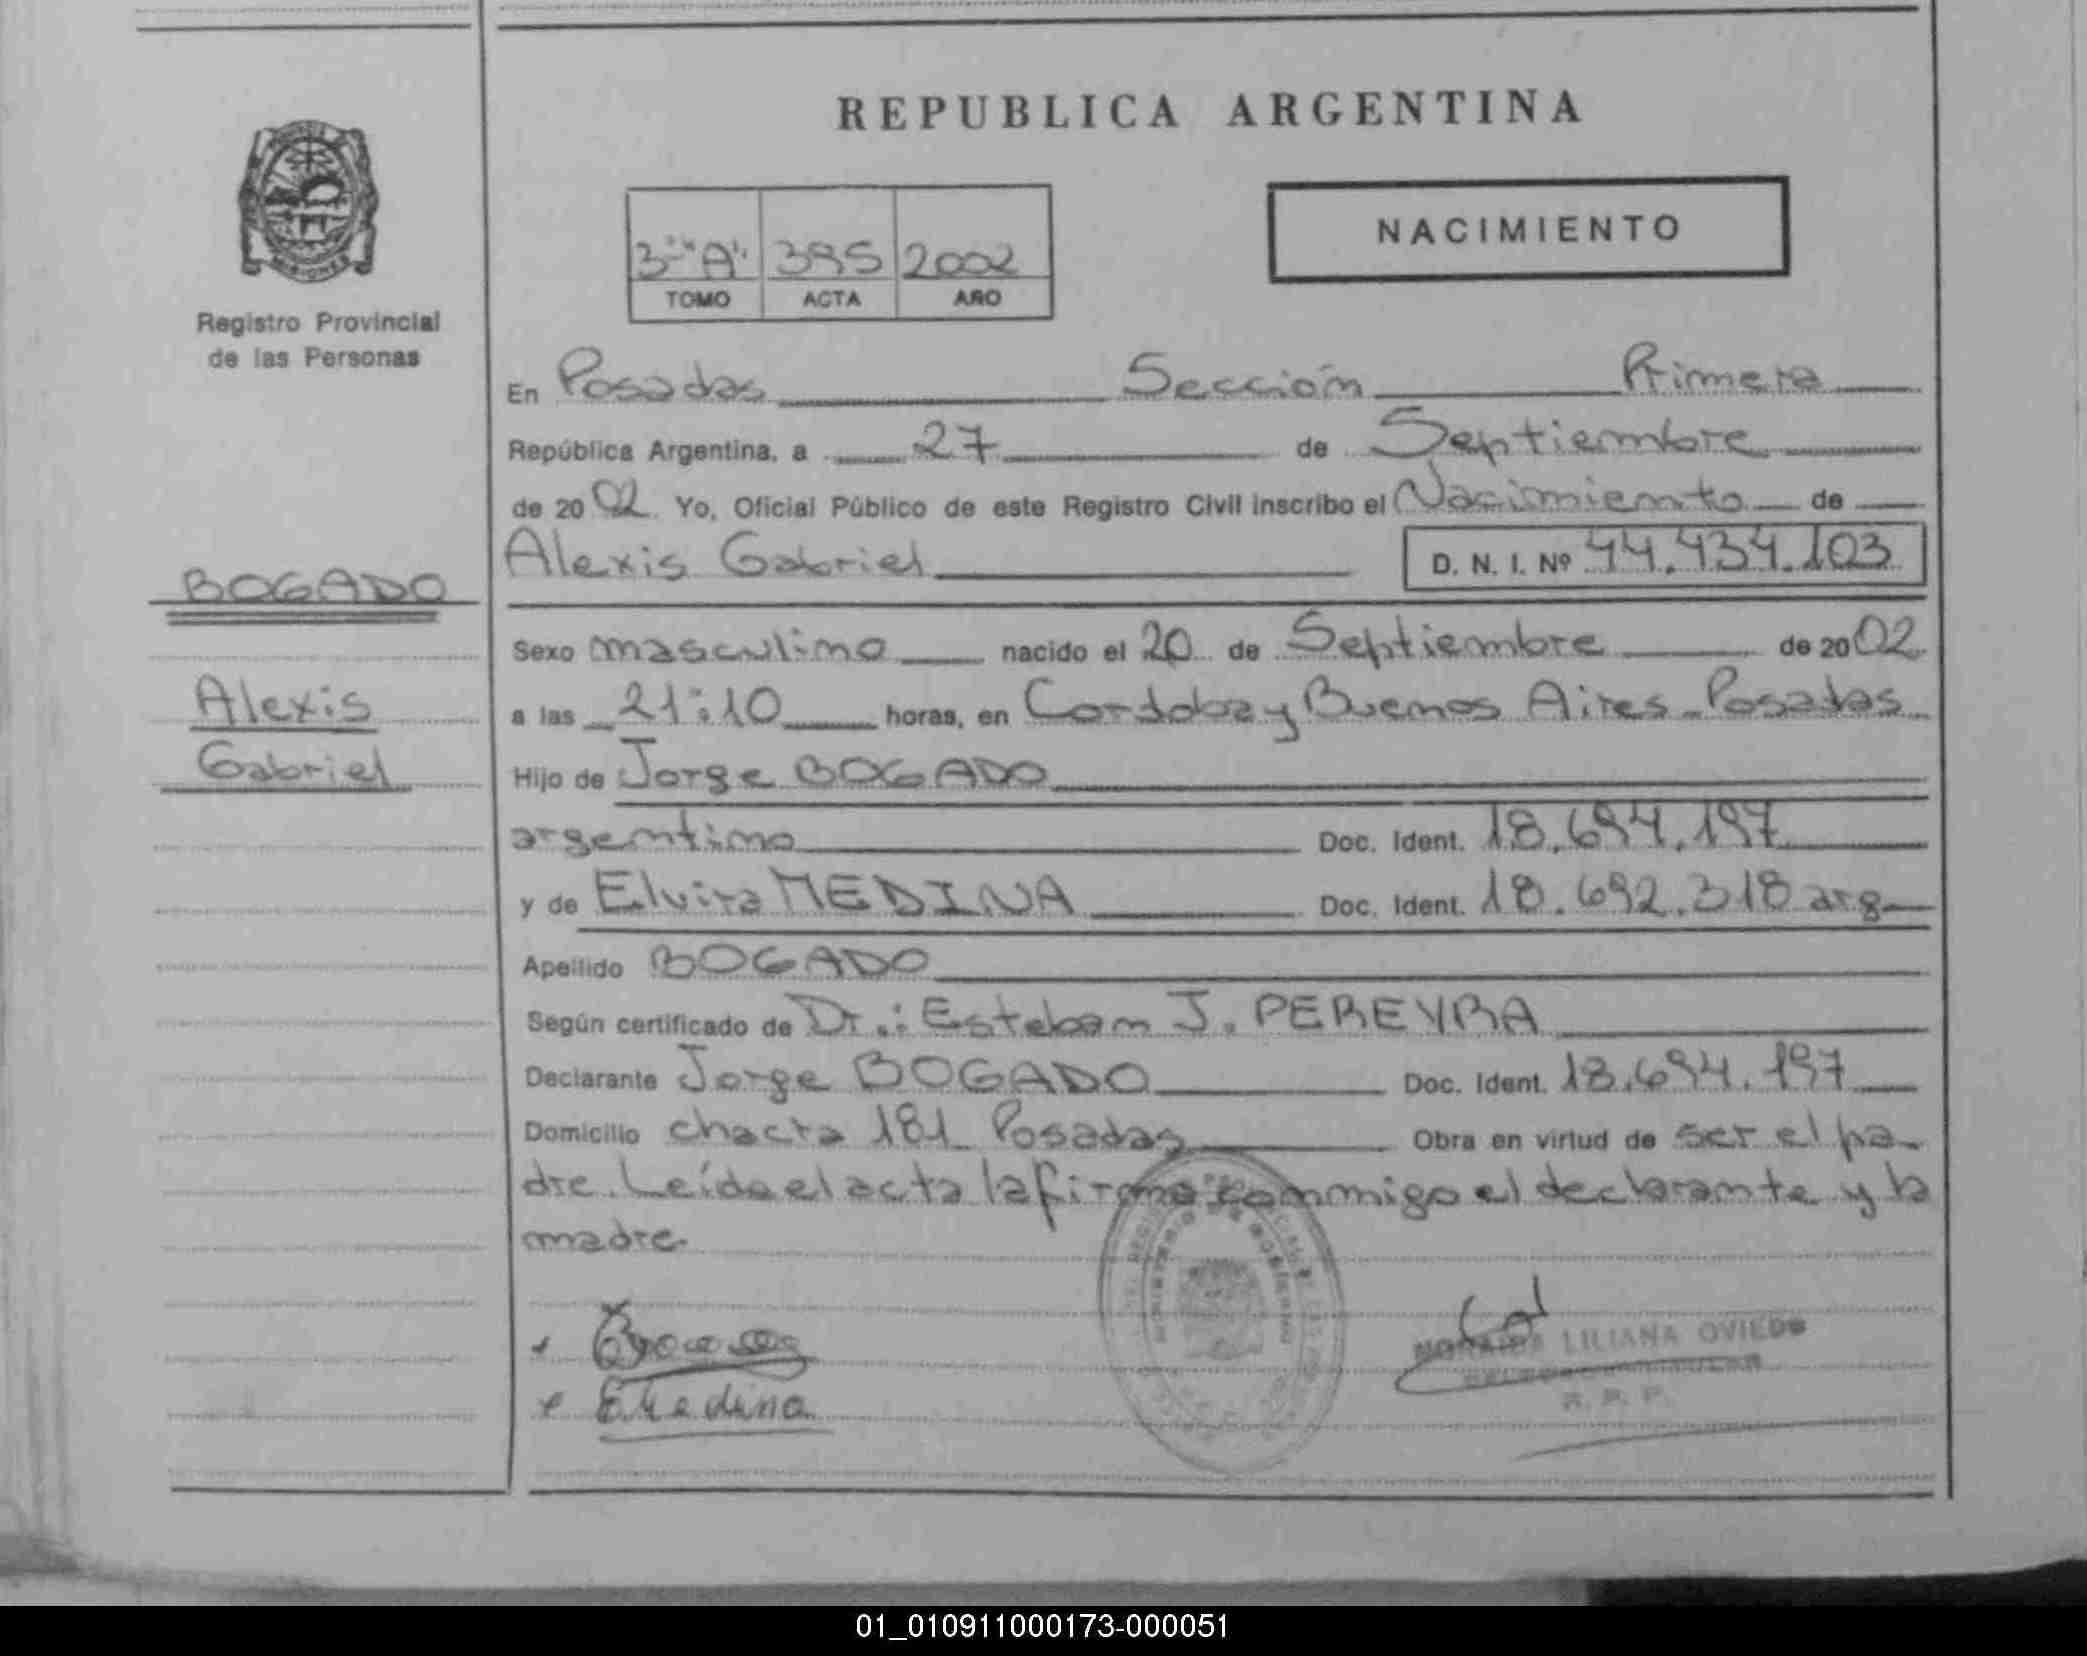 REPUBLICA ARGENTINA
NACIMIENTO
3º "A" 395 2002
TOMO ACTA AÑO
Registro Provincial
de las Personas
En Posadas Sección Primera
República Argentina, a 27 de Septiembre
de 2002 Yo, Oficial Público de este Registro Civil inscribo el Nacimiento de
Alexis Gabriel D. N. I. Nº 44.434.103
BOGADO
Alexis
Gabriel
Sexo masculino nacido el 20 de Septiembre de 2002
a las 21:10 horas, en Cordoba y Buenos Aires - Posadas
Hijo de Jorge BOGADO
argentino Doc. Ident. 18.694.197
y de Elvira MEDINA Doc. Ident. 18.692.318 arg
Apellido BOGADO
Según certificado de Dr.: Esteban J. PEREYRA
Declarante Jorge BOGADO Doc. Ident. 18.694.197
Domicilio chacra 181 Posadas Obra en virtud de ser el pa-
dre. Leída el acta la firma conmigo el declarante y la
madre.
E Medina
LILIANA OVIEDO
R. P. P.
01_010911000173-000051